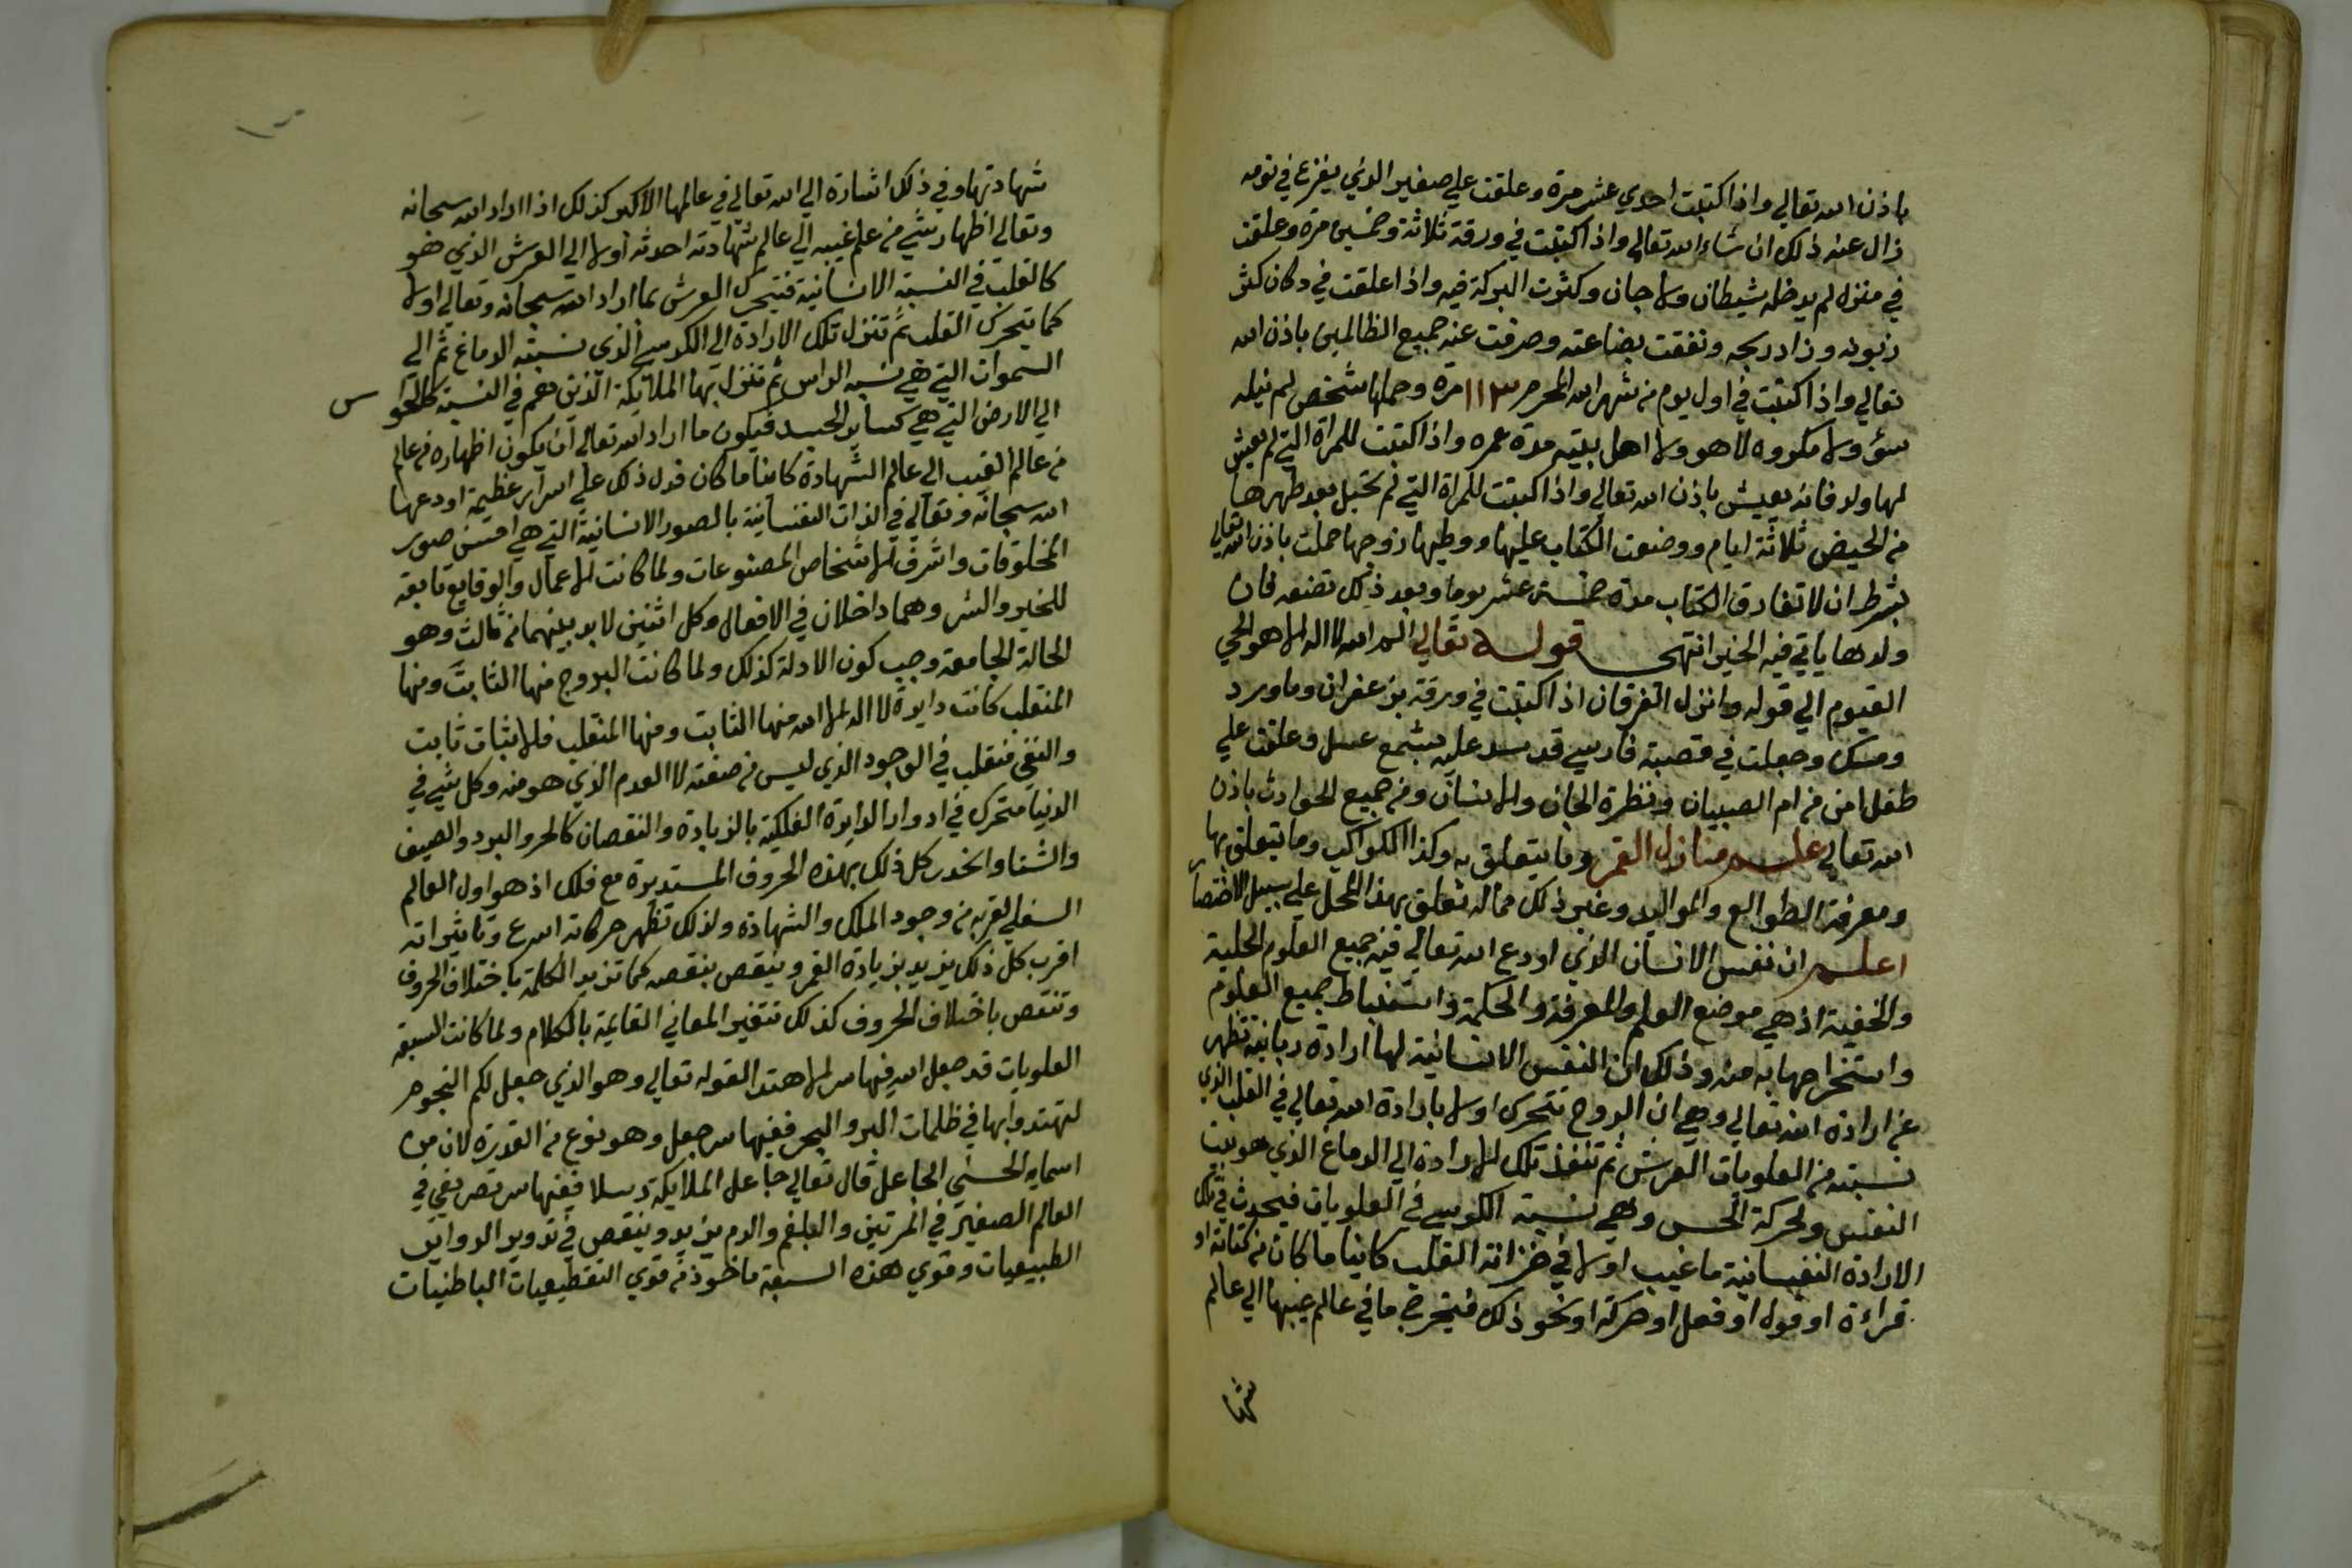 باذن الله تعالي واذا كتبت احدي عشر مرة وعلقت علي صغير الذي يفزع في نومه
زال عنه ذلك ان شاء الله تعالي واذا كتبت في ورقة ثلاثة وخمسين مرة وعلقت
في منزل لم يدخله شيطان ولا جان وكثرت البركة فيه واذا علقت في دكان كثر
زبونه وزاد ربحه ونفقت بضاعته وصرفت عنه جميع الظالمين باذن الله
تعالي واذا كتبت في اول يوم من شهر الله المحرم ١١٣ مرة وحملها شخص لم ينله
سوء ولا مكروه لا هو ولا اهل بيته مدة عمره واذا كتبت للمراة التي لم يعيش
لها ولد فانه يعيش باذن الله تعالي واذا كتبت للمراة التي لم تحبل بعد طهرها
من الحيض ثلاثة ايام ووضعت الكتاب عليها ووطيها زوجها حملت باذن الله تعالي
بشرط ان لا تفارق الكتاب مدة خمسة عشر يوما وبعد ذلك تضعه فان
ولدها ياتي فيه الخير انتهى قوله تعالي الم الله لا اله الا هو الحي
القيوم الي قوله وانزل الفرقان اذا كتبت في ورقة بزعفران وماورد
ومسك وجعلت في قصبة فارسي قد سد عليه بشمع عسل وعلقت علي
طفل امن من ام الصبيان ونظرة الجان والانسان ومن جميع الحوادث باذن
الله تعالي علم منازل القمر وما يتعلق به وكذا الكواكب وما يتعلق بها
ومعرفة الطوالع والمواليد وغير ذلك مما له تعلق بهذا المحل علي سبيل الاختصا
اعلم ان نفس الانسان الذي اودع الله تعالي فيه جميع العلوم الجلية
والخفية اذ هي موضع العلم والمعرفة والحكمة واستنباط جميع العلوم
واستخراجها به منه وذلك ان النفس الانسانية لها ارادة ربانية تظهر
عن ارادة الله تعالي وهي ان الروح تتحرك اولا بارادة الله تعالي في القلب الذي
نسبته من العلويات العرش ثم تنفذ تلك الارادة الي الدماغ الذي هو بيت
النفس ولحركة الحس وهي نسبة الكرسي في العلويات فيحدث في تلك
الارادة النفسانية ما غيب اولا في خزانة القلب كاينا ما كان من كتابة او
قراءة او قول او فعل او حركة او نحو ذلك فيخرج ما في عالم غيبها الي عالم
شها
شهادتها وفي ذلك اشارة الي الله تعالي في عالمها الاكبر كذلك اذا اراد الله سبحانه
وتعالي اظهار شي من علم غيبه الي عالم شهادته احدثه اولا الي العرش الذي هو
كالقلب في النسبة الانسانية فيتحرك العرش بما اراد الله سبحانه وتعالي اولا
كما يتحرك القلب ثم تنزل تلك الارادة الي الكرسي الذي نسبته الدماغ ثم الي
السموات التي هي نسبه الراس ثم تنزل بها الملائكة الذين هم في النسبة كالحوا
س
الي الارض التي هي كساير الجسد فيكون ما اراد الله تعالي ان يكون اظهاره في عالم
من عالم الغيب الي عالم الشهادة كاينا ما كان فدل ذلك علي اسرار عظيمة اودعها
الله سبحانه وتعالي في الذات النفسانية بالصور الانسانية التي هي احسن صور
المخلوقات واشرف الاشخاص المصنوعات ولما كانت الاعمال والوقايع تابعة
للخير والشر وهما داخلان في الافعال وكل اثنين لابد بينهما من ثالث وهو
الحالة الجامعة وجب كون الادلة كذلك ولما كانت البروج منها الثابت ومنها
المنقلب كانت دايرة لا اله الا الله منها الثابت ومنها المنقلب فالاثبات ثابت
والنفي منقلب في الوجود الذي ليس من صفته لا العدم الذي هو منه وكل شي في
الدنيا متحرك في ادوار الدايرة الفلكية بالزيادة والنقصان كالحر والبرد والصيف
والشتا كل ذلك بهذه الحروف المستديرة مع فلك اذ هو اول العالم
السفلي لقربه من وجود الملك والشهادة ولذلك تظهر حركاته اسرع وتاثيراته
اقرب كل ذلك يزيد بزيادة القمر وينقص بنقصه كما تزيد الكلمة باختلاف الحروف
وتنقص باختلاف الحروف كذلك تتغير المعاني القايمة بالكلام ولما كانت السبعة
العلويات قد جعل الله فيها سر الاهتدا لقوله تعالي وهو الذي جعل لكم النجوم
لتهتدوا بها في ظلمات البر والبحر ففيها سر جعل وهو نوع من القدرة لان من
اسمايه الحسني الجاعل قال تعالي جاعل الملايكة رسلا ففيها سر تصريفي في
العالم الصغير في المرتين والبلغم والدم يزيد وينقص في تدوير الدواير
الطبيعيات وقوي هذه السبعة ماخوذ من قوي الباطنيات